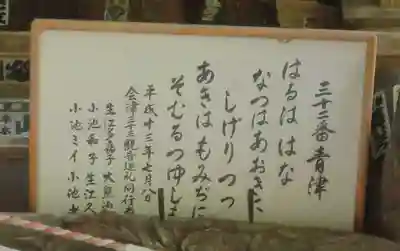 三十二番 青津
はるは はな
なつはあおきに
しげりつつ
あきは もみぢに
そむるつゆしも
平成十三年七月八日
会津三十三観音巡礼同行
生江多嘉子
小池 子 生江久
小池ミイ 小池